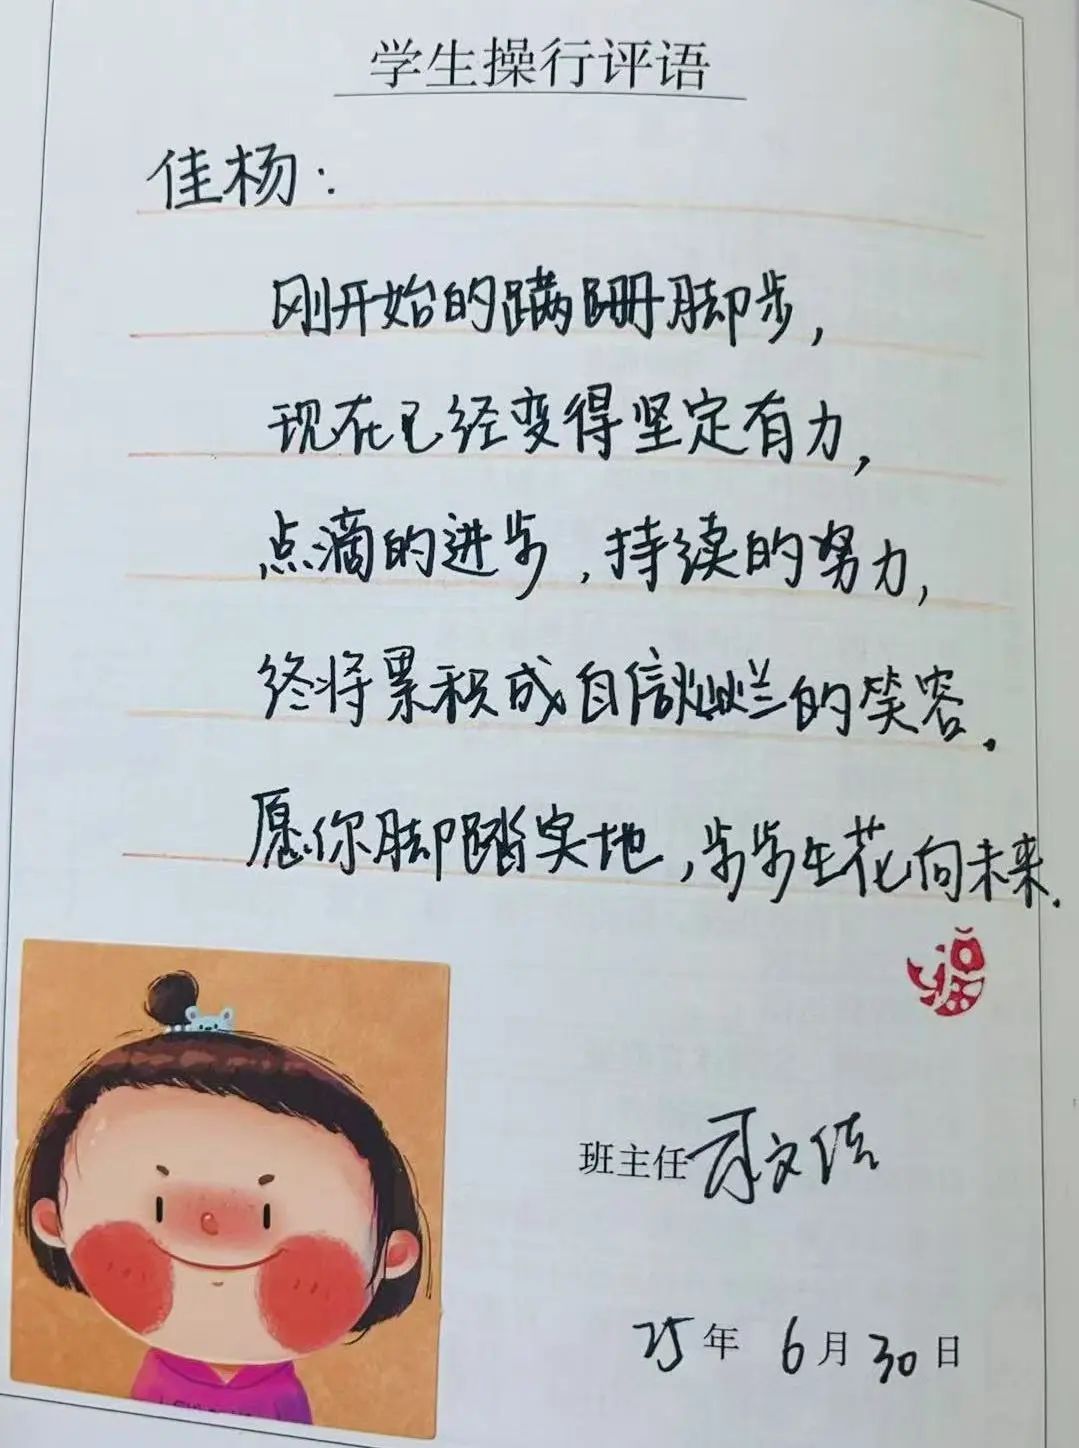 学生操行评语
佳杨:
刚开始的蹒跚脚步,
现在已经变得坚定有力,
点滴的进步,持续的努力,
终将累积成自信灿烂的笑容.
愿你脚踏实地,步步生花向未来.
福
班主任
25年 6月30日